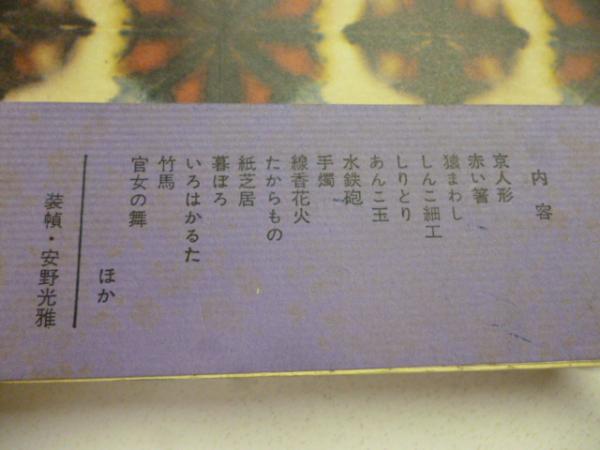 内容
京人形
赤い箸
猿まわし
しんこ細工
しりとり
あんこ玉
水鉄砲
手燭
線香花火
たからもの
紙芝居
暮ぼろ
いろはかるた
竹馬
官女の舞
ほか
装幀・安野光雅